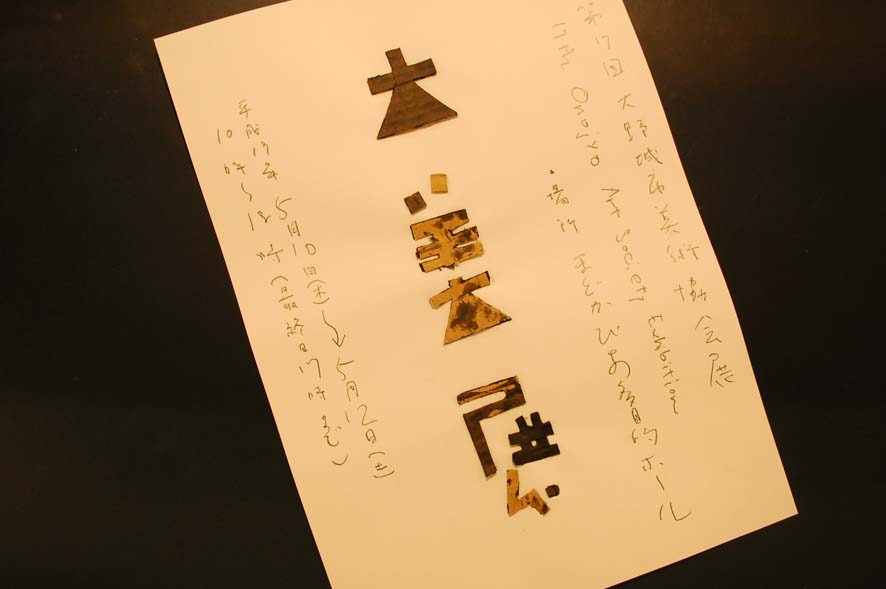 第17回 大野城市美術協会展
Onojyo Art Society exhibition
・場所 まどかぴあ多目的ホール
大美展
平成19年 5月10日(木)→5月12日(土)
10時〜18時(最終日17時まで)